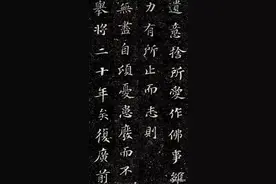 遺意捨所愛作佛事雖
力有所止而志則
無盡自頃憂患廢而不
舉將二十年矣復廣前